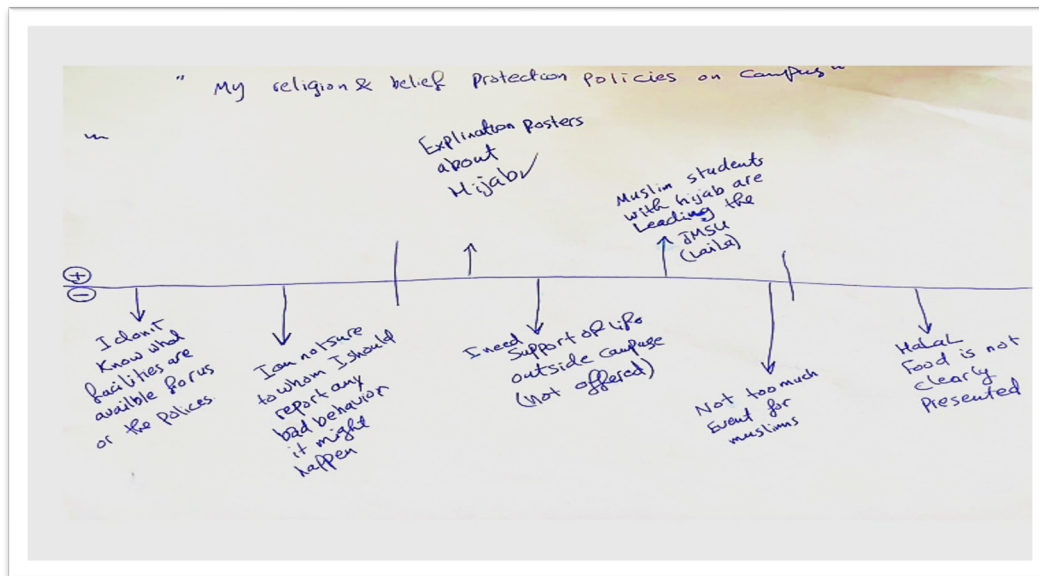 " My religion & belief protection policies on campus "
Explination posters
about
Hijab ✓
Muslim students
with hijab are
Leading the
JMSU
(Laila)
+
-
I don't
Know what
facilities are
availble for us
or the polices.
I am not sure
to whom I should
report any
bad behavior
it might
happen
I need
Support of life
outside campuse
(not offered)
Not too much
Event for
muslims
Halal
Food is not
clearly
Presented